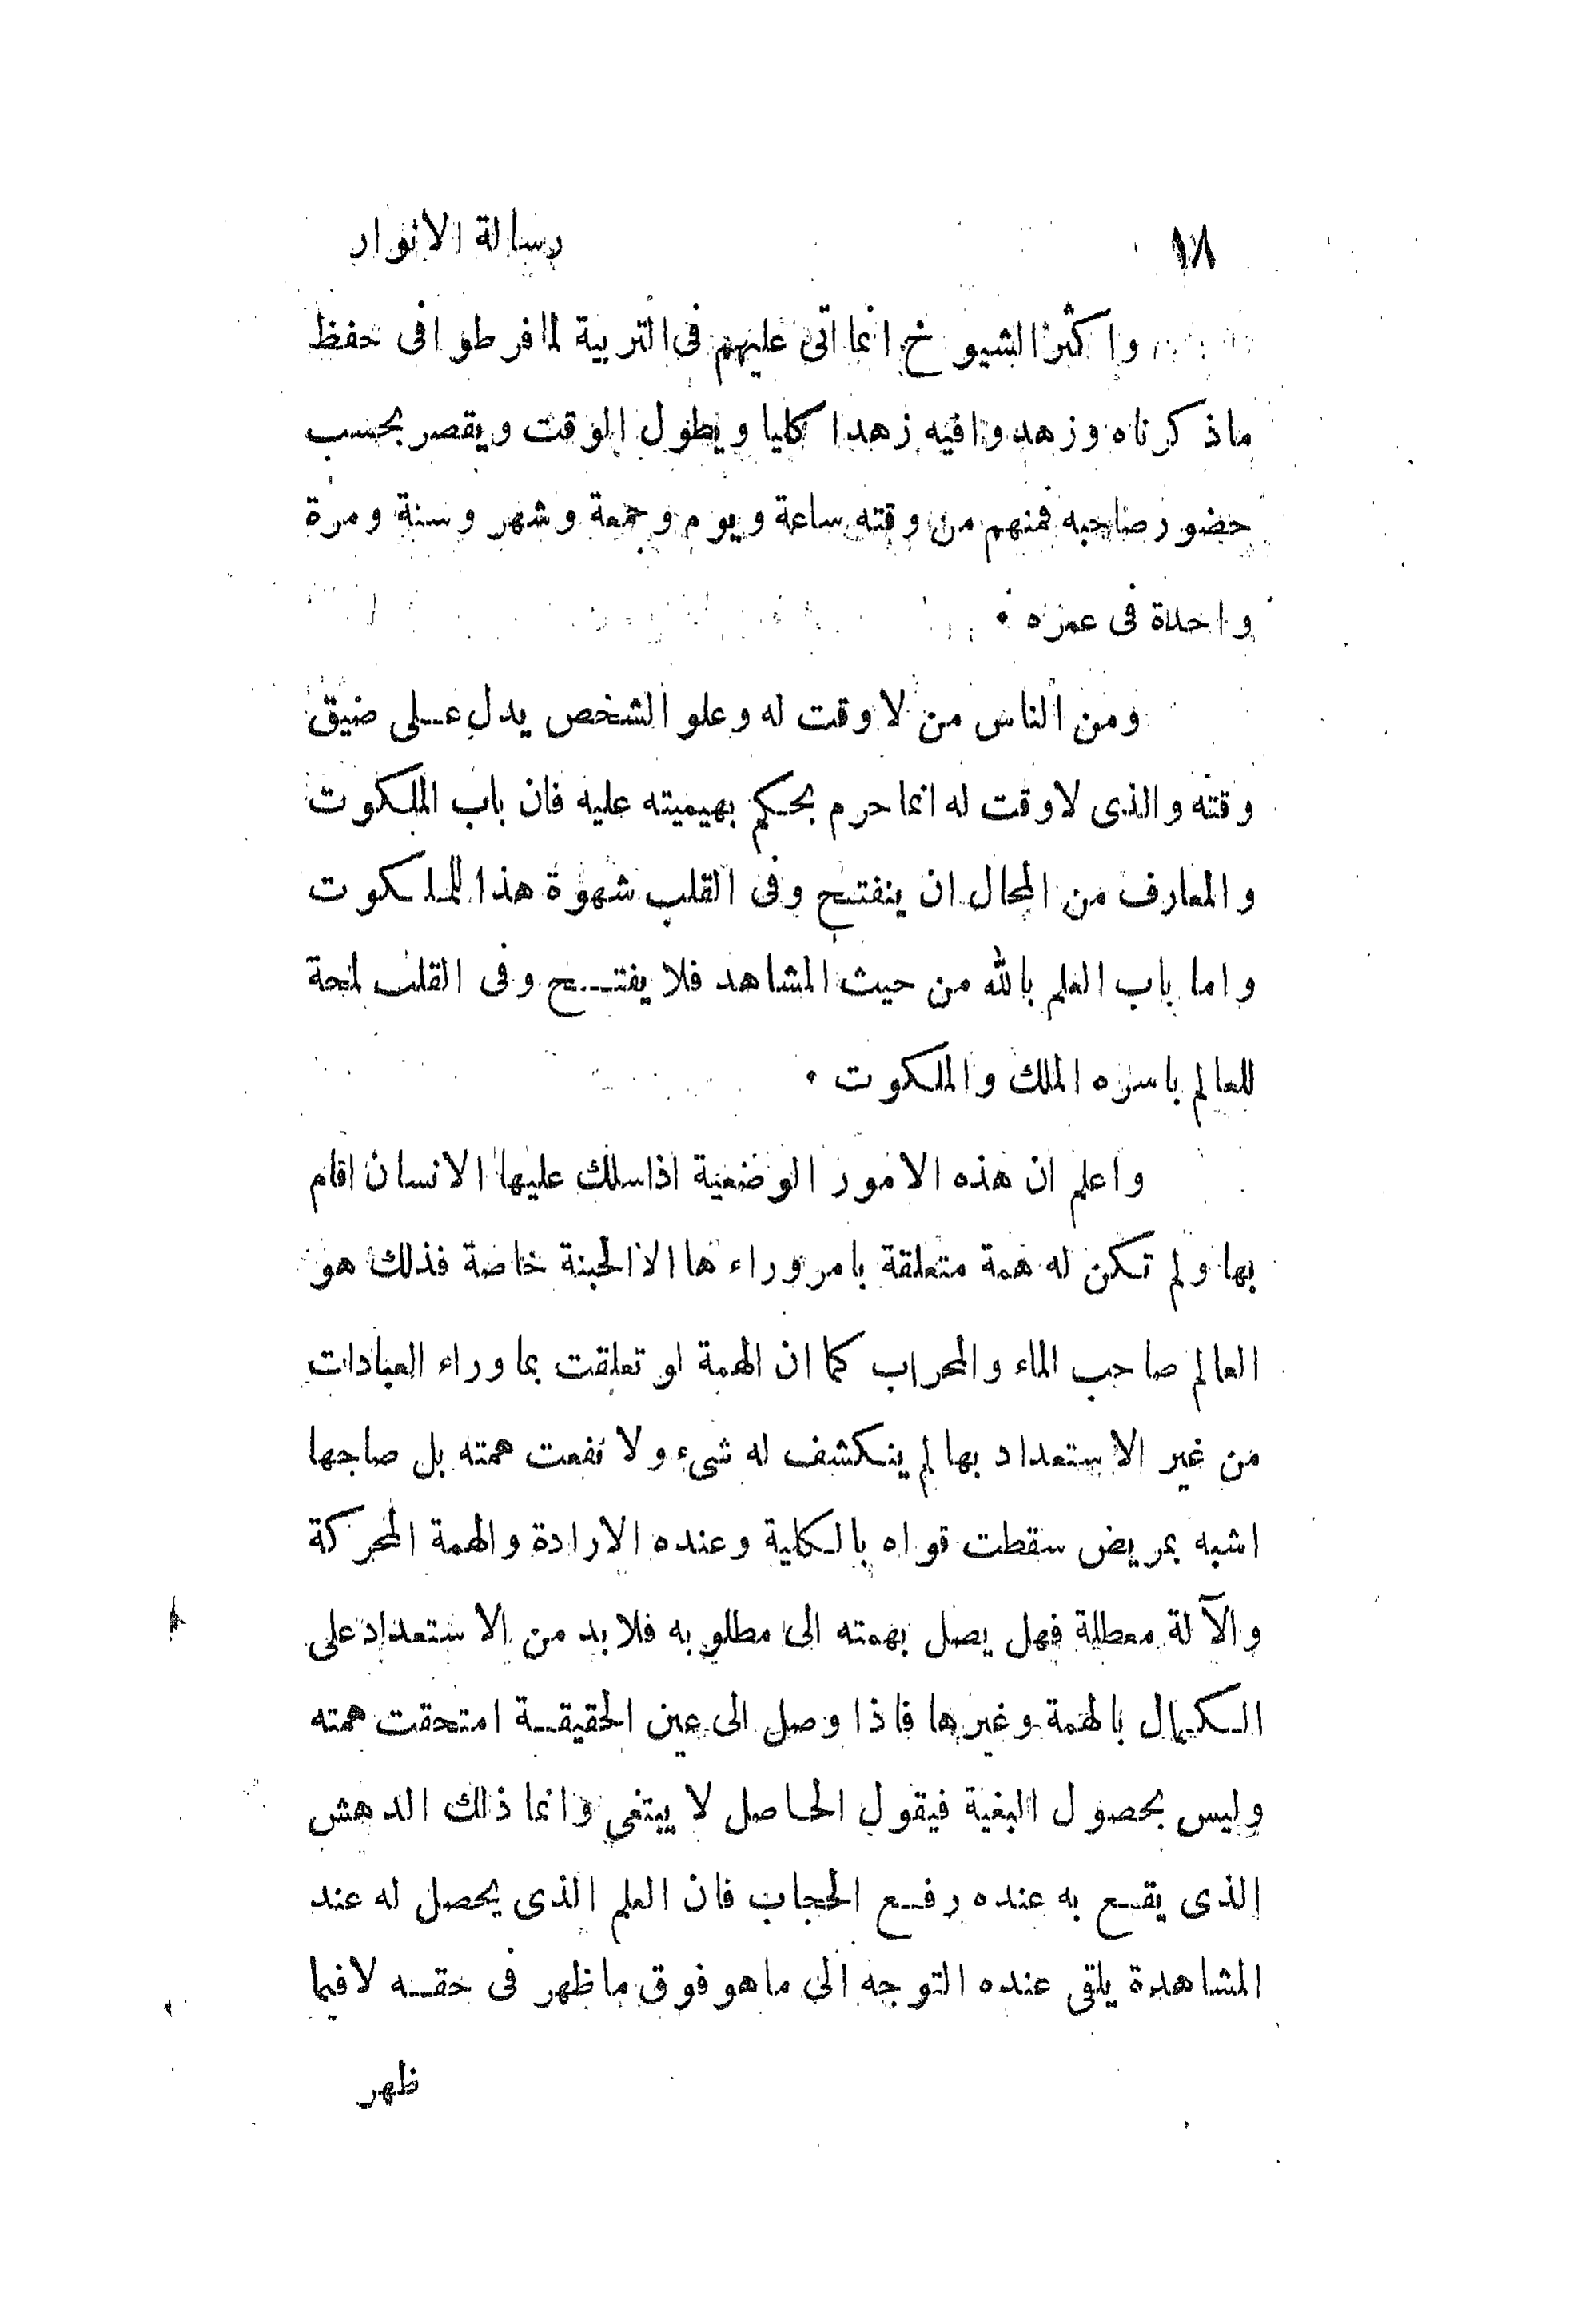 ١٨ رسالة الانوار
واكثر الشيوخ انما اتى عليهم فى التربية لما فرطوا فى حفظ
ماذكرناه وزهدوا فيه زهدا كليا ويطول الوقت ويقصر بحسب
حضور صاحبه فمنهم من وقته ساعة ويوم وجمعة وشهر وسنة ومرة
واحدة فى عمره •
ومن الناس من لا وقت له وعلو الشخص يدل على ضيق
وقته والذى لا وقت له انما حرم بحكم بهيميته عليه فان باب الملكوت
والمعارف من المحال ان ينفتح وفى القلب شهوة هذا للملكوت
واما باب العلم بالله من حيث المشاهد فلا يفتح وفى القلب لمحة
للعالم باسره الملك والملكوت •
واعلم ان هذه الامور الوضعية اذا سلك عليها الانسان اقام
بها ولم تكن له همة متعلقة بامر وراءها الا الجنة خاصة فذلك هو
العالم صاحب الماء والمحراب كما ان الهمة لو تعلقت بما وراء العبادات
من غير الاستعداد بها لم ينكشف له شىء ولا نفعت همته بل صاحبها
اشبه بمريض سقطت قواه بالكلية وعنده الارادة والهمة المحركة
والآلة معطلة فهل يصل بهمته الى مطلوبه فلابد من الاستعداد على
الكمال بالهمة وغيرها فاذا وصل الى عين الحقيقة امتحقت همته
وليس بحصول البغية فيقول الحاصل لا يبتغى وانما ذلك الدهش
الذى يقع به عنده رفع الحجاب فان العلم الذى يحصل له عند
المشاهدة يلقى عنده التوجه الى ماهو فوق ماظهر فى حقه لا فيما
ظهر